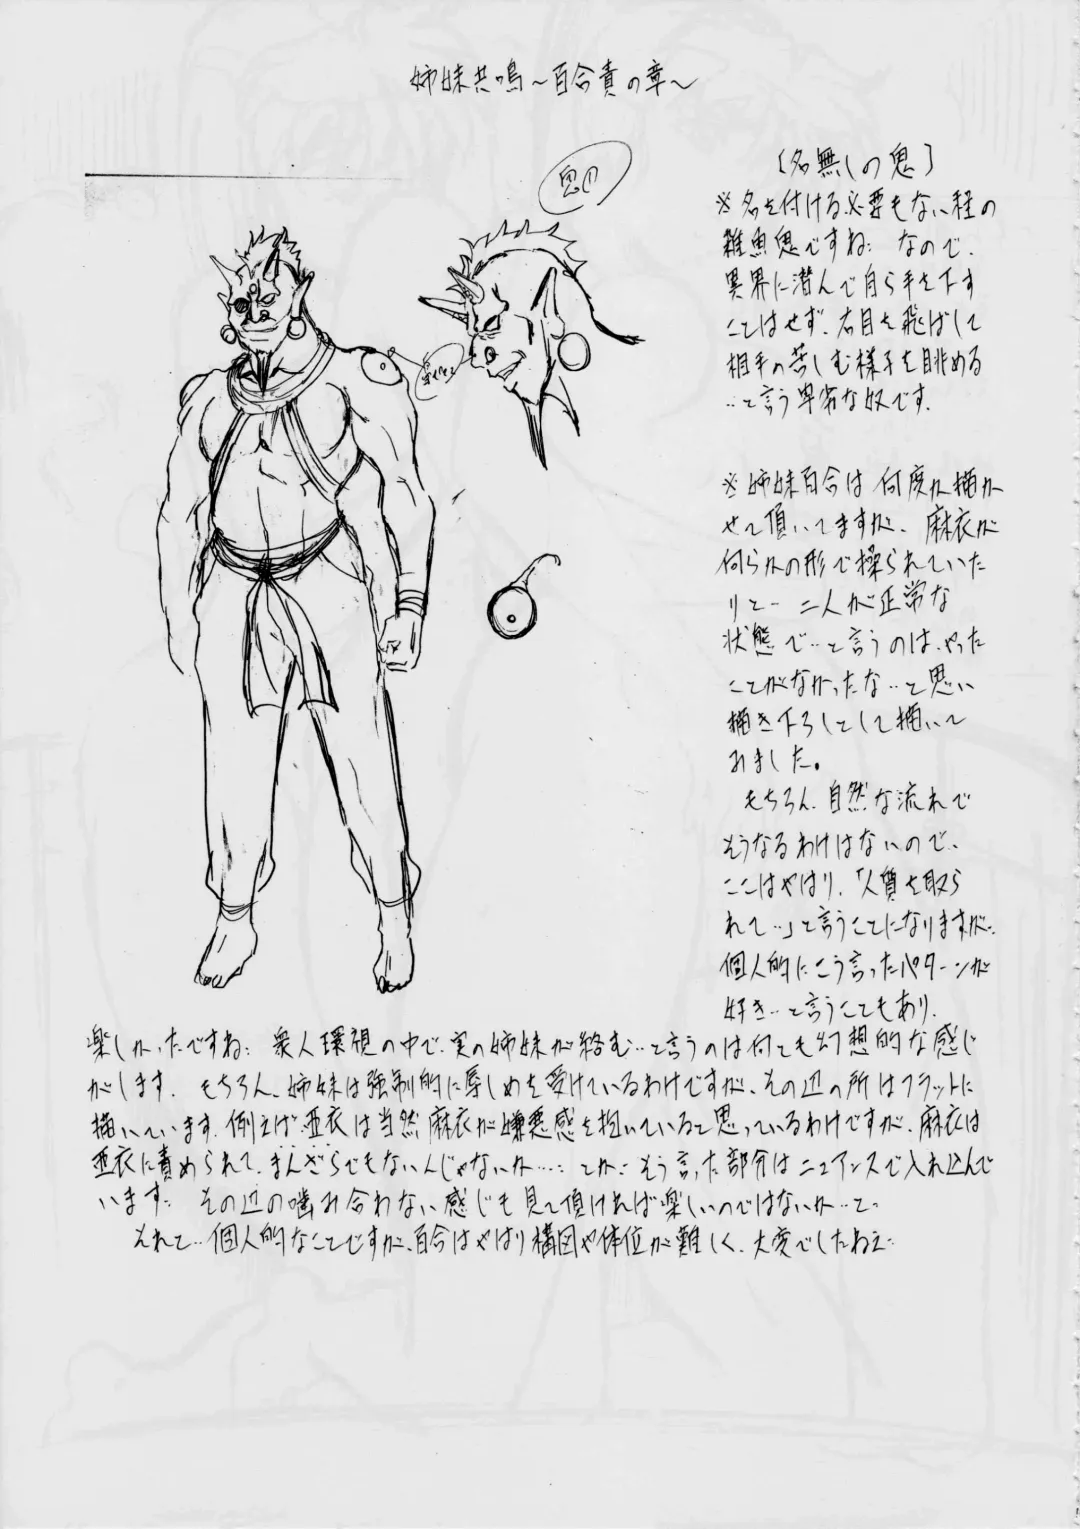 姉妹共鳴～百合責の章～
鬼の
〔名無しの鬼〕
※名を付ける必要もない程の
雑魚鬼ですね… なので、
異界に潜んで自ら手を下す
ことはせず、右目を飛ばして
相手の苦しむ様子を眺める
…と言う卑劣な奴です。
※姉妹百合は何度か描か
せて頂いてますが、麻衣が
何らかの形で操られていた
りと… 二人が正常な
状態で…と言うのは、やった
ことがなかったな…と思い
描き下ろしとして描いて
みました。
もちろん、自然な流れで
そうなるわけはないので、
ここはやはり、「人質を取ら
れて…」と言うことになりますが…
個人的にこう言ったパターンが
好き…と言うこともあり、
楽しかったですね… 衆人環視の中で、実の姉妹が絡む…と言うのは何とも幻想的な感じ
がします。もちろん、姉妹は強制的に辱しめを受けているわけですが、その辺の所はフラットに
描いています。例えば亜衣は当然麻衣が嫌悪感を抱いていると思っているわけですが、麻衣は
亜衣に責められて、まんざらでもないんじゃないか…… とか… そう言った部分はニュアンスで入れ込んで
います… その辺の噛み合わない感じも見て頂ければ楽しいのではないか…と…
それと… 個人的なことですが、百合はやはり構図や体位が難しく、大変でしたねえ…